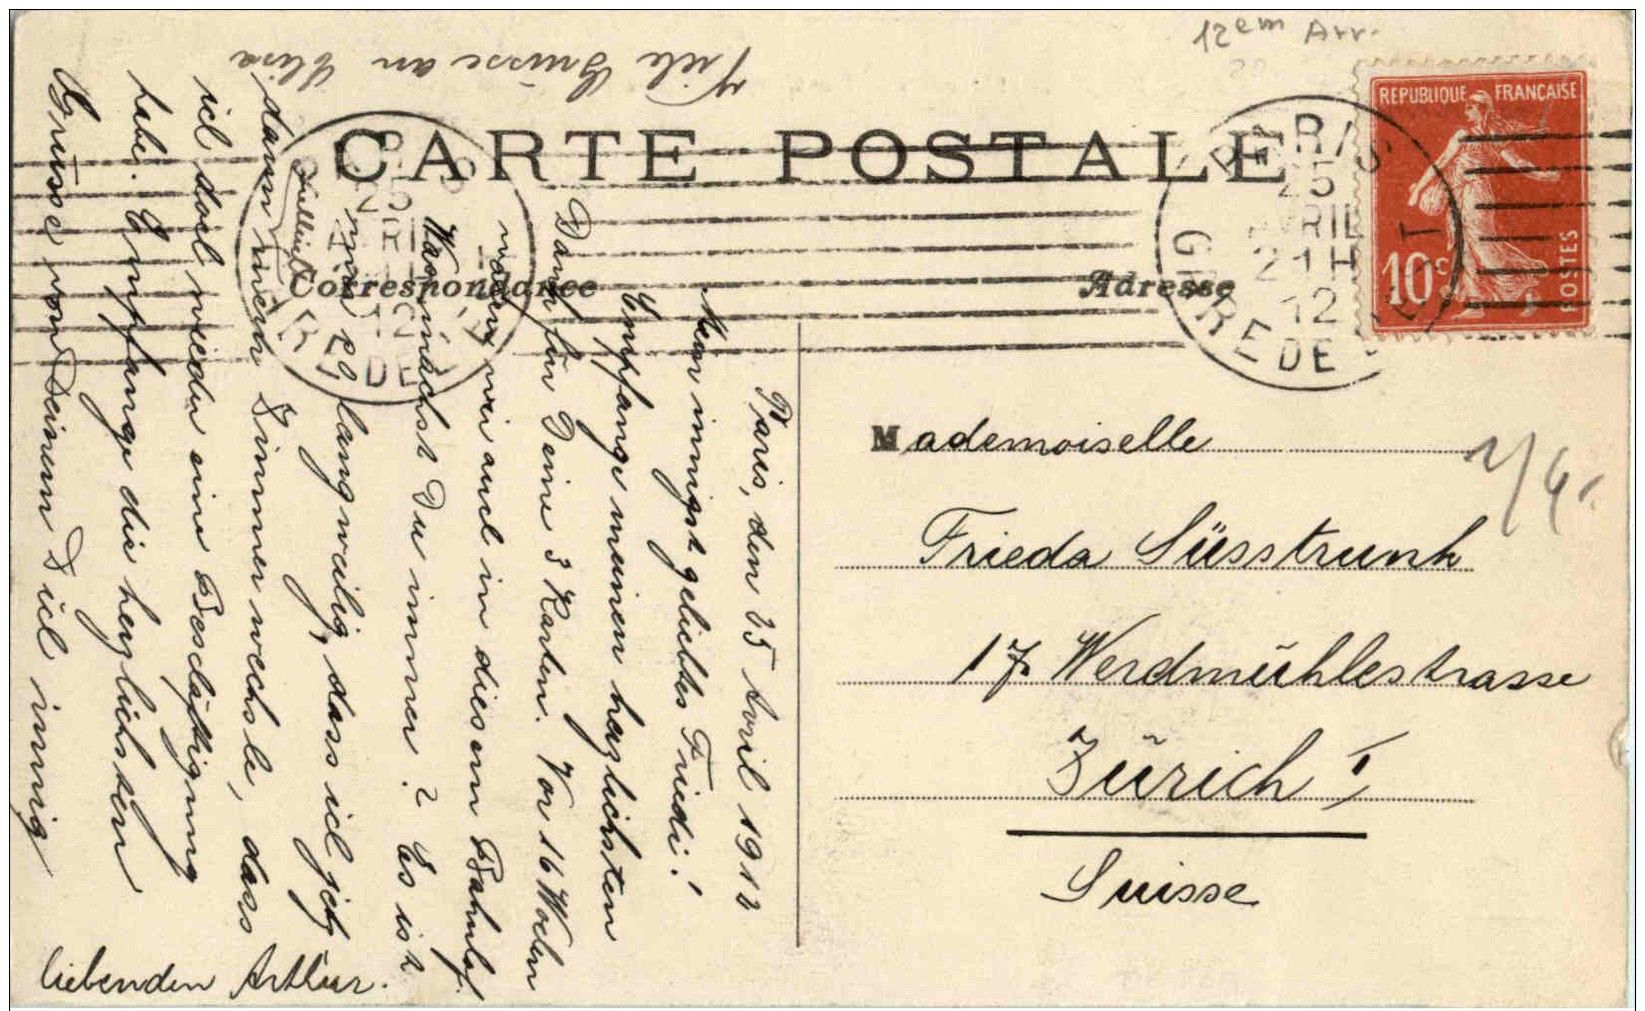 12em Arr.
Viele Grüsse an Clara
CARTE POSTALE
REPUBLIQUE FRANÇAISE
10c
POSTES
PARIS
25
AVRIL
21H
12
GARE DE
Correspondance
Adresse
Paris, den 25 April 1912
Mein innigst geliebtes Friedi!
Empfange meinen herzlichsten
Dank für Deine 3 Karten. Vor 16 Wochen
waren wir auch in diesem Bahnhof.
Was machst Du immer? Es ist
mir so langweilig, dass ich jetzt
dann mein Zimmer wechsle, dass
ich doch wieder eine Beschäftigung
habe. Empfange die herzlichsten
Grüsse von Deinem Dich innig
liebenden Arthur.
Mademoiselle
Frieda Süsstrunk
17. Werdmühlestrasse
Zürich I
Suisse